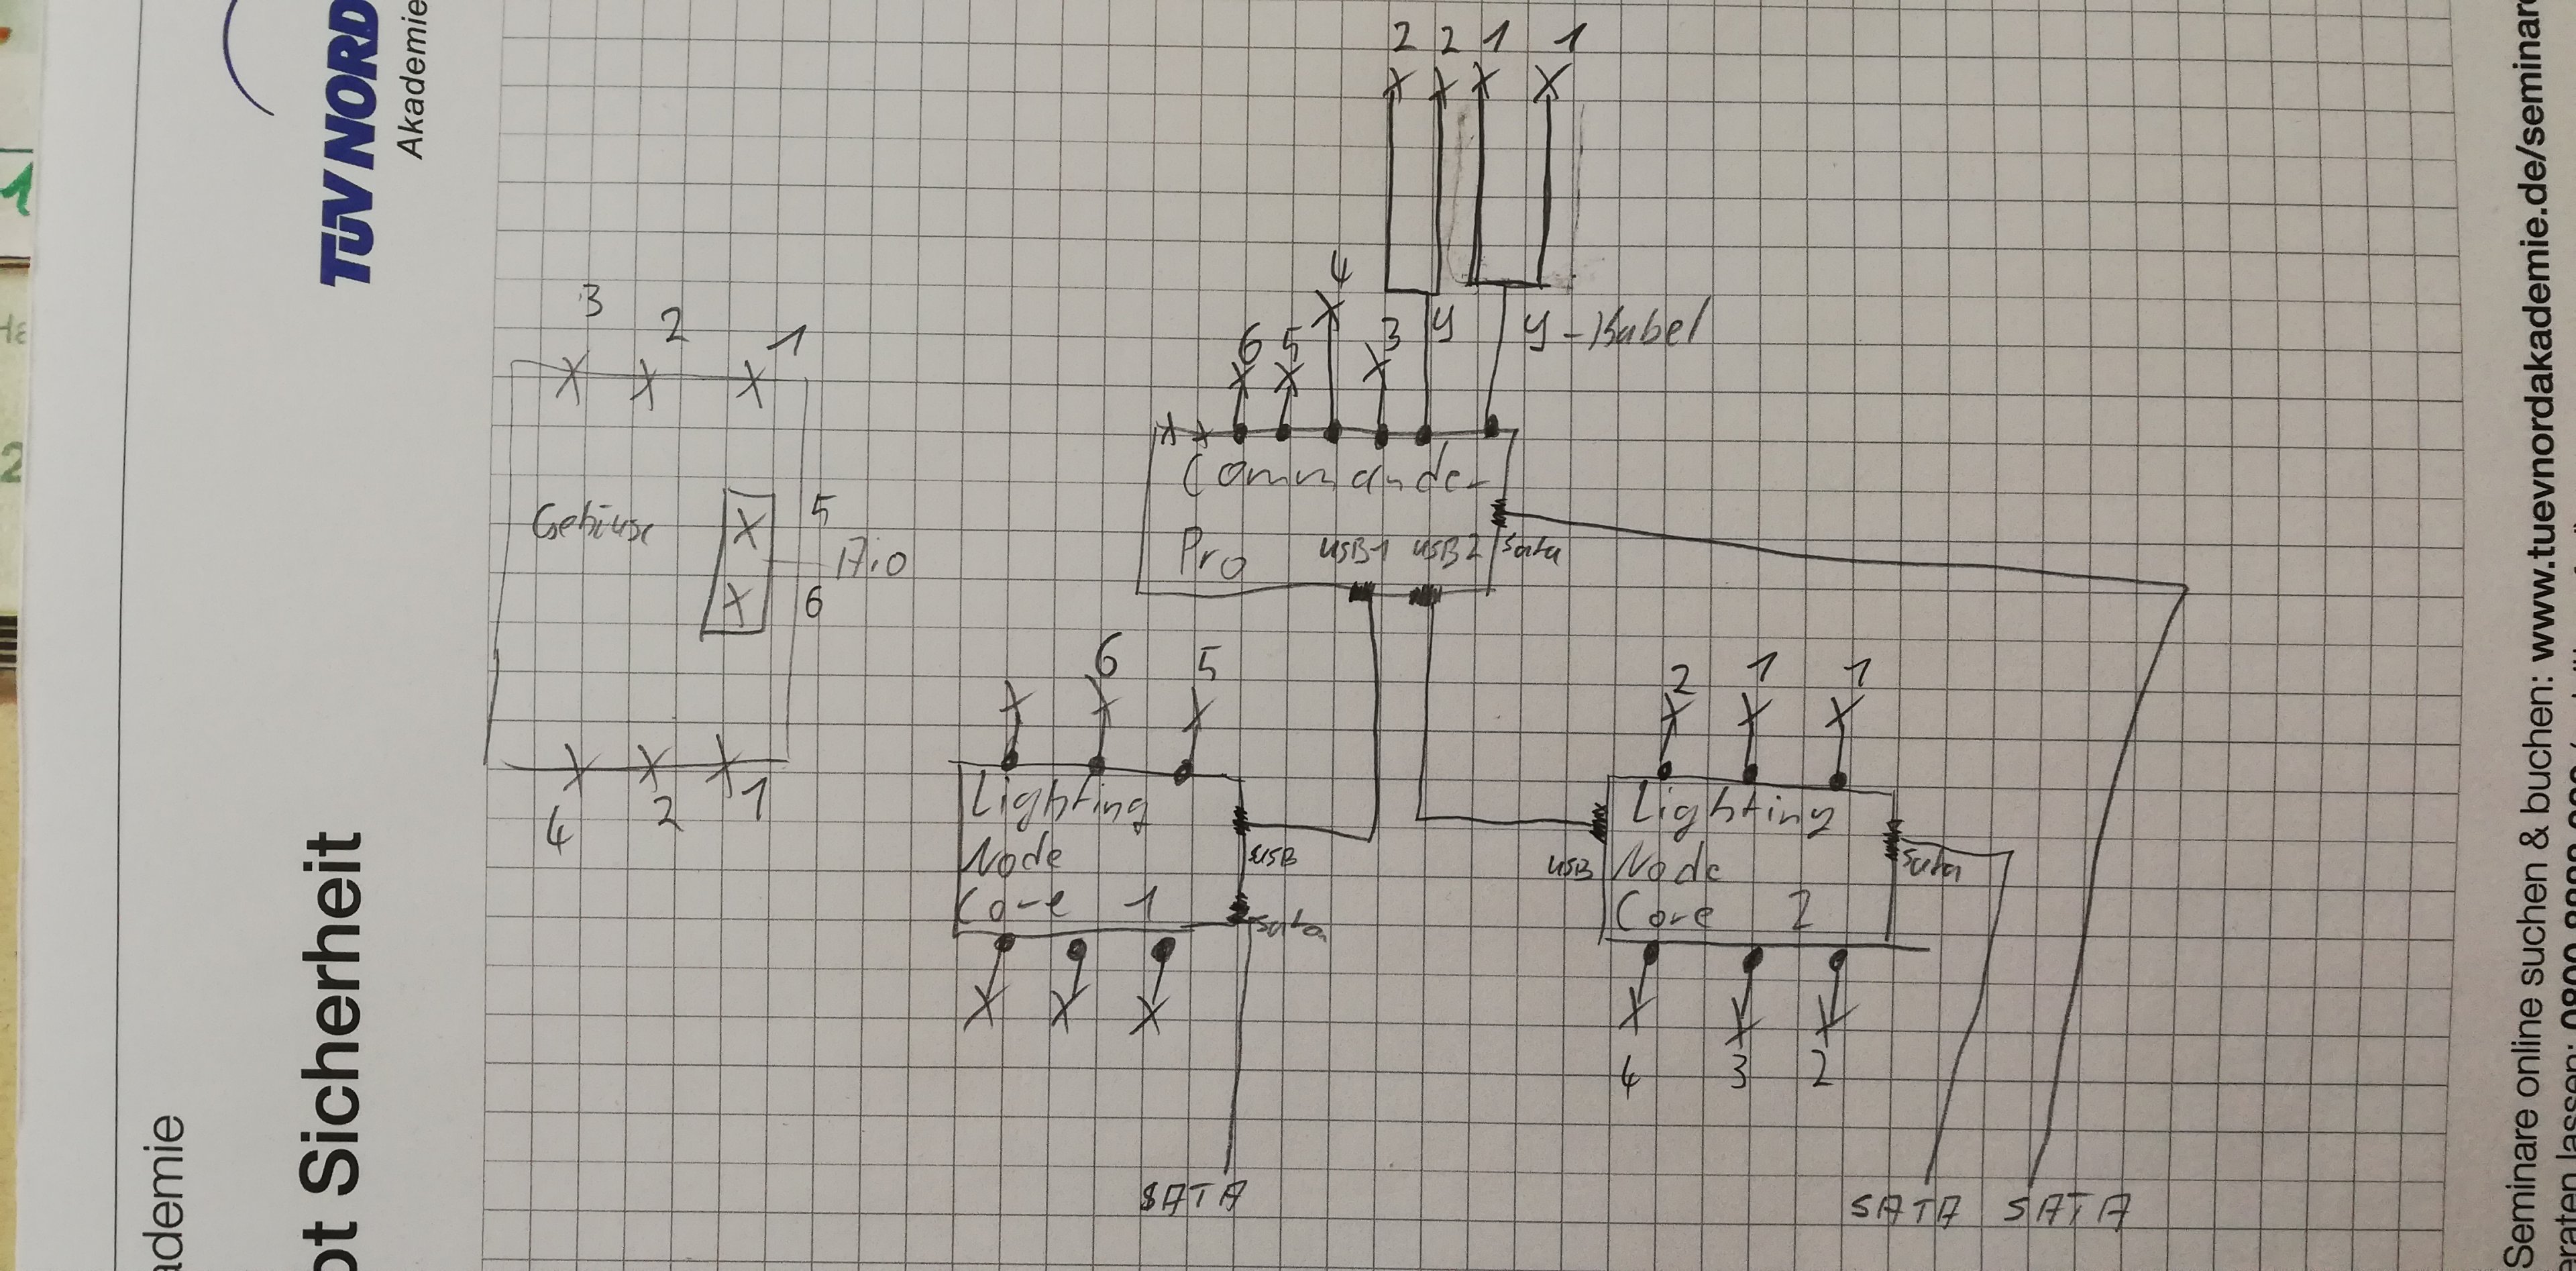 TÜV NORD
Akademie
ademie
ot Sicherheit
Seminare online suchen & buchen: www.tuevnordakademie.de/seminare
eraten lassen: 0800 8888
1
2
3
2
1
Gehäuse
5
Aio
6
4
2
1
2 2 1 1
4
6 5 3 y y-Kabel
Commander
Pro
USB1 USB2 Sata
6 5
Lighting
Node
Core 1
USB
Sata
SATA
2 1 1
Lighting
Node
Core 2
USB
Sata
4 3 2
SATA SATA